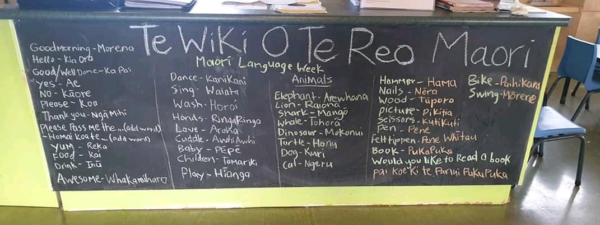 Te Wiki O Te Reo Maori
Maori Language Week
Goodmorning - Morena
Hello - Kia Ora
Good/Well Done - Ka Pai
Yes - Ae
No - Kāore
Please - Koa
Thank you - Ngā Mihi
Please Pass me the ... (add word)
- Homai koa te ... (add word)
Yum - Reka
Food - Kai
Drink - Inu
Awesome - Whakamiharo
Dance - Kanikani
Sing - Waiata
Wash - Horoi
Hands - RingaRinga
Love - Aroha
Cuddle - Awhi Awhi
Baby - PEPE
Children - Tamariki
Play - Hianga
Animals
Elephant - Arewhana
Lion - Raiona
Shark - Mango
Whale - Tohora
Dinosaur - Mokonui
Turtle - Honu
Dog - Kuri
Cat - Ngeru
Hammer - Hama
Nails - Nēra
Wood - Tūporo
Picture - Pikita
Scissors - Kutikuti
Pen - Pene
Felt tip pen - Pene Whitau
Book - PukaPuka
Would you like to Read a book
pai koe ki te Panui PukuPuka
Bike - Paihikara
Swing - Mōrere